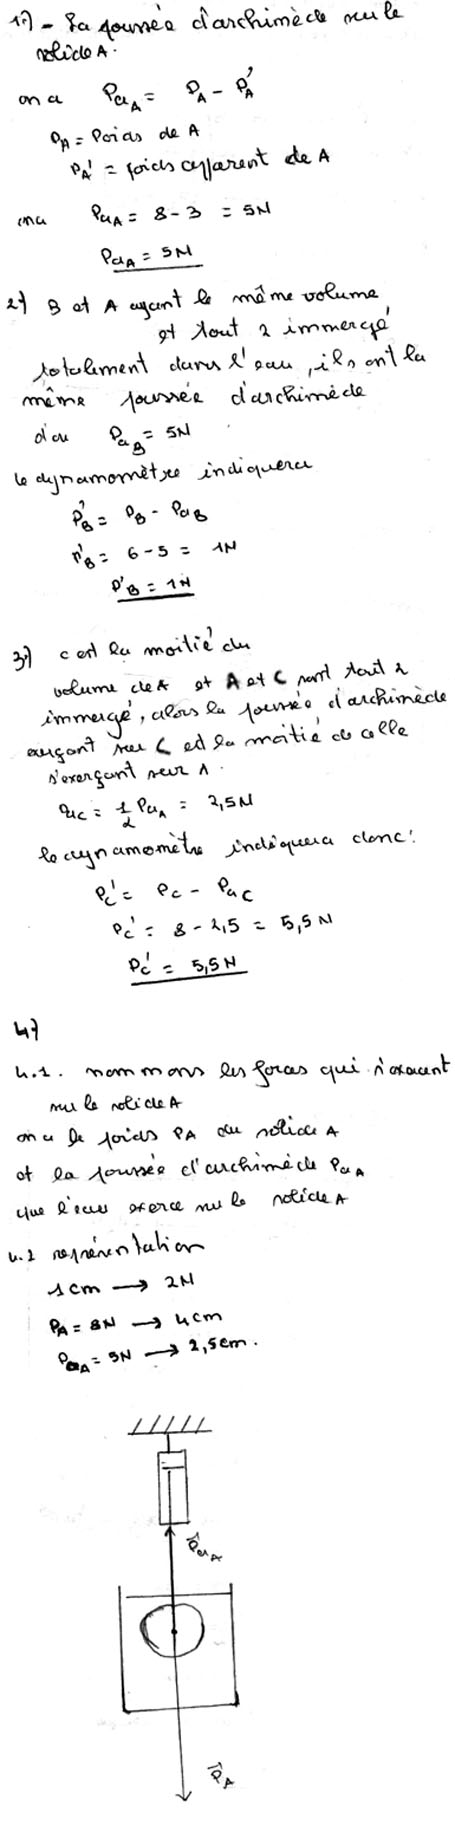 1°) - La poussée d'archimède sur le
solide A.
on a PaA = PA - P'A
PA = Poids de A
P'A = poids apparent de A
PaA = 8 - 3 = 5N
PaA = 5N
2°) B et A ayant le même volume
et tout 2 immergé
totalement dans l'eau, ils ont la
même poussée d'archimède
d'où PaB = 5N
le dynamomètre indiquera
P'B = PB - PaB
P'B = 6 - 5 = 1N
P'B = 1N
3°) C est la moitié du
volume de A et A et C sont tout 2
immergé, alors la poussée d'archimède
exerçant sur C est la moitié de celle
s'exerçant sur A.
PaC = 1/2 PaA = 2,5N
le dynamomètre indiquera donc:
P'C = PC - PaC
P'C = 8 - 2,5 = 5,5N
P'C = 5,5N
4°)
4.1. nommons les forces qui s'exercent
sur le solide A
on a le poids PA du solide A
et la poussée d'archimède PaA
que l'eau exerce sur le solide A
4.2 représentation
1cm → 2N
PA = 8N → 4cm
PaA = 5N → 2,5cm.
PaA
PA